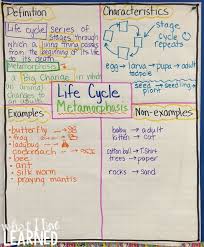 Definition
Life cycle series of
stages through
which a living thing passes
from the beginning of its life
to its death
Metamorphosis
A Big Change in what
an animal changes
to an adult
Characteristics
stage
cycle
repeats
egg → larva → pupa → adult
tadpole
seed → seedling →
plant
Life Cycle
Metamorphosis
Examples
• butterfly
• frog
• ladybug
• cockroach
• bee
• ant
• silk worm
• praying mantis
Non-examples
baby → adult
kitten → cat
cotton ball → T.Shirt
trees → paper
rocks → Sand
what I have
LEARNED